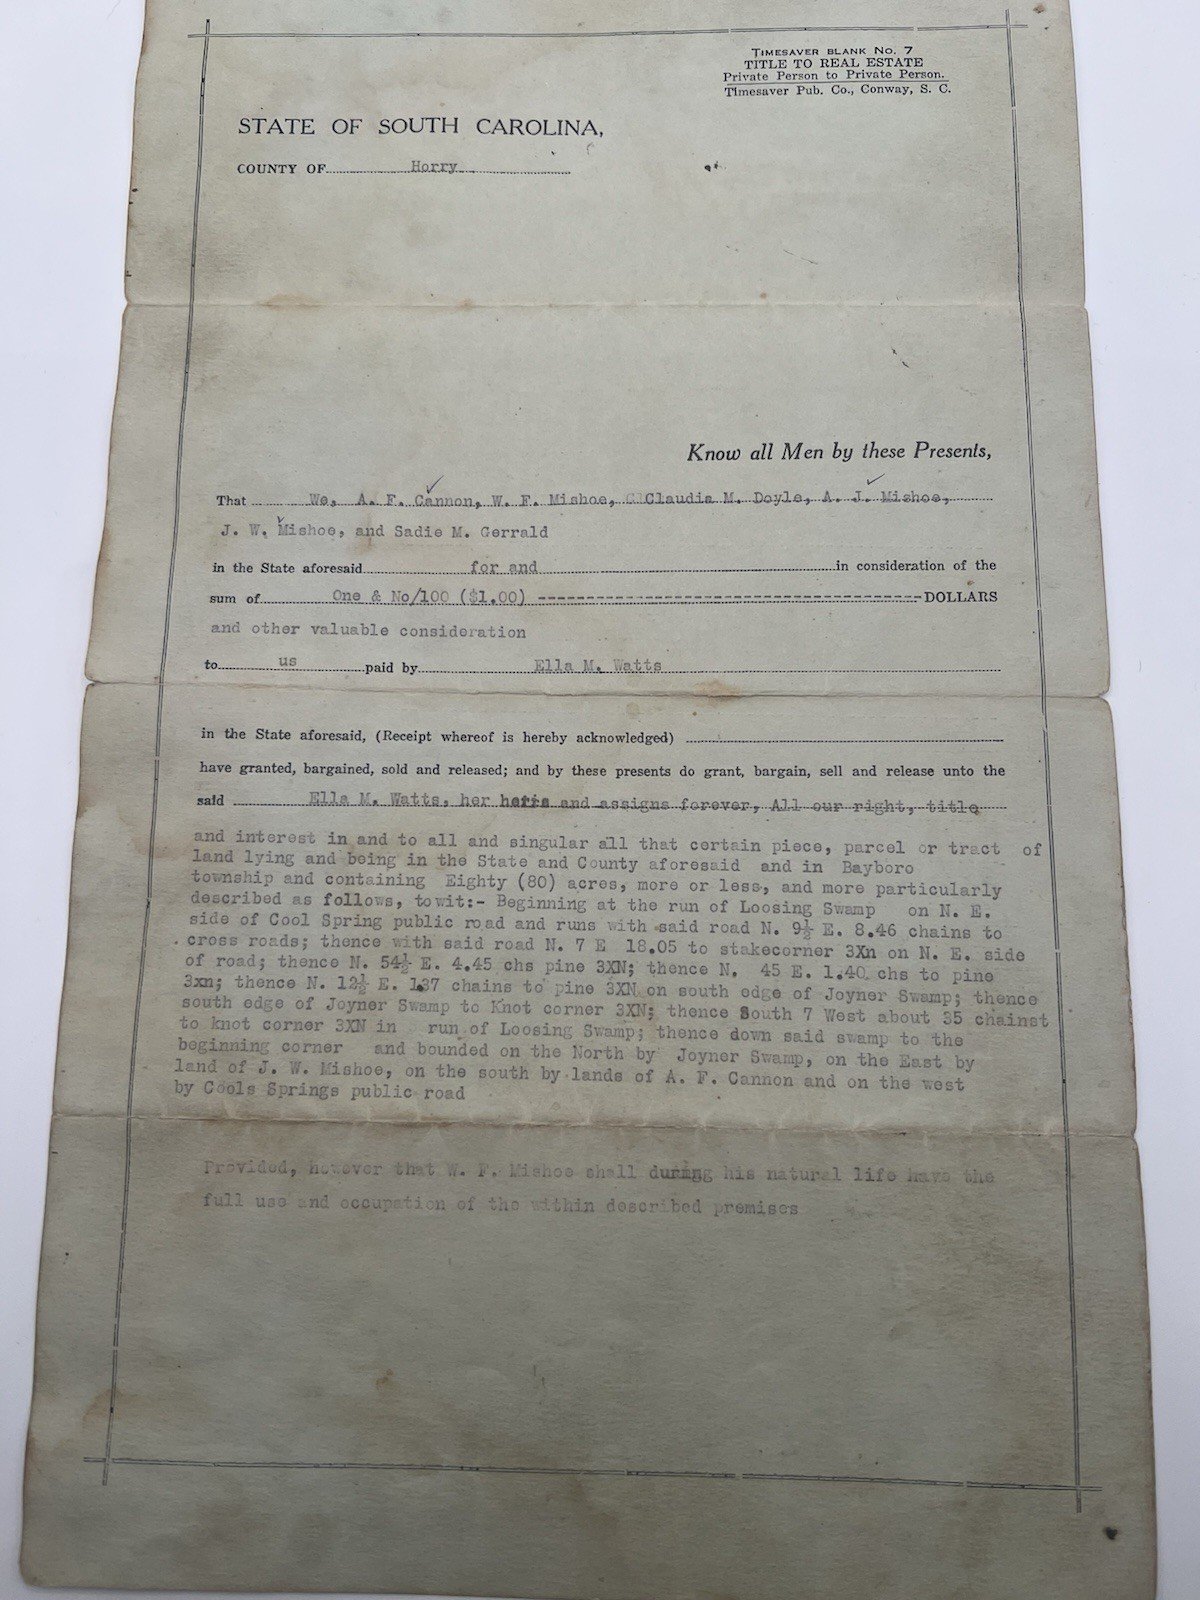 TIMESAVER BLANK NO. 7
TITLE TO REAL ESTATE
Private Person to Private Person.
Timesaver Pub. Co., Conway, S. C.
STATE OF SOUTH CAROLINA,
COUNTY OF Horry
Know all Men by these Presents,
That We, A. F. Cannon, W. F. Mishoe, Claudia M. Doyle, A. J. Mishoe,
J. W. Mishoe, and Sadie M. Gerrald
in the State aforesaid for and in consideration of the
sum of One & No/100 ($1.00) ---------------------------------------- DOLLARS
and other valuable consideration
to us paid by Ella M. Watts
in the State aforesaid, (Receipt whereof is hereby acknowledged)
have granted, bargained, sold and released; and by these presents do grant, bargain, sell and release unto the
said Ella M. Watts, her heirs and assigns forever, All our right, title
and interest in and to all and singular all that certain piece, parcel or tract of
land lying and being in the State and County aforesaid and in Bayboro
township and containing Eighty (80) acres, more or less, and more particularly
described as follows, towit:- Beginning at the run of Loosing Swamp on N. E.
side of Cool Spring public road and runs with said road N. 9½ E. 8.46 chains to
cross roads; thence with said road N. 7 E 18.05 to stakecorner 3Xn on N. E. side
of road; thence N. 54½ E. 4.45 chs pine 3XN; thence N. 45 E. 1.40 chs to pine
3xn; thence N. 12½ E. 1.37 chains to pine 3XN on south edge of Joyner Swamp; thence
south edge of Joyner Swamp to Knot corner 3XN; thence South 7 West about 35 chainst
to knot corner 3XN in run of Loosing Swamp; thence down said swamp to the
beginning corner and bounded on the North by Joyner Swamp, on the East by
land of J. W. Mishoe, on the south by lands of A. F. Cannon and on the west
by Cools Springs public road
Provided, however that W. F. Mishoe shall during his natural life have the
full use and occupation of the within described premises